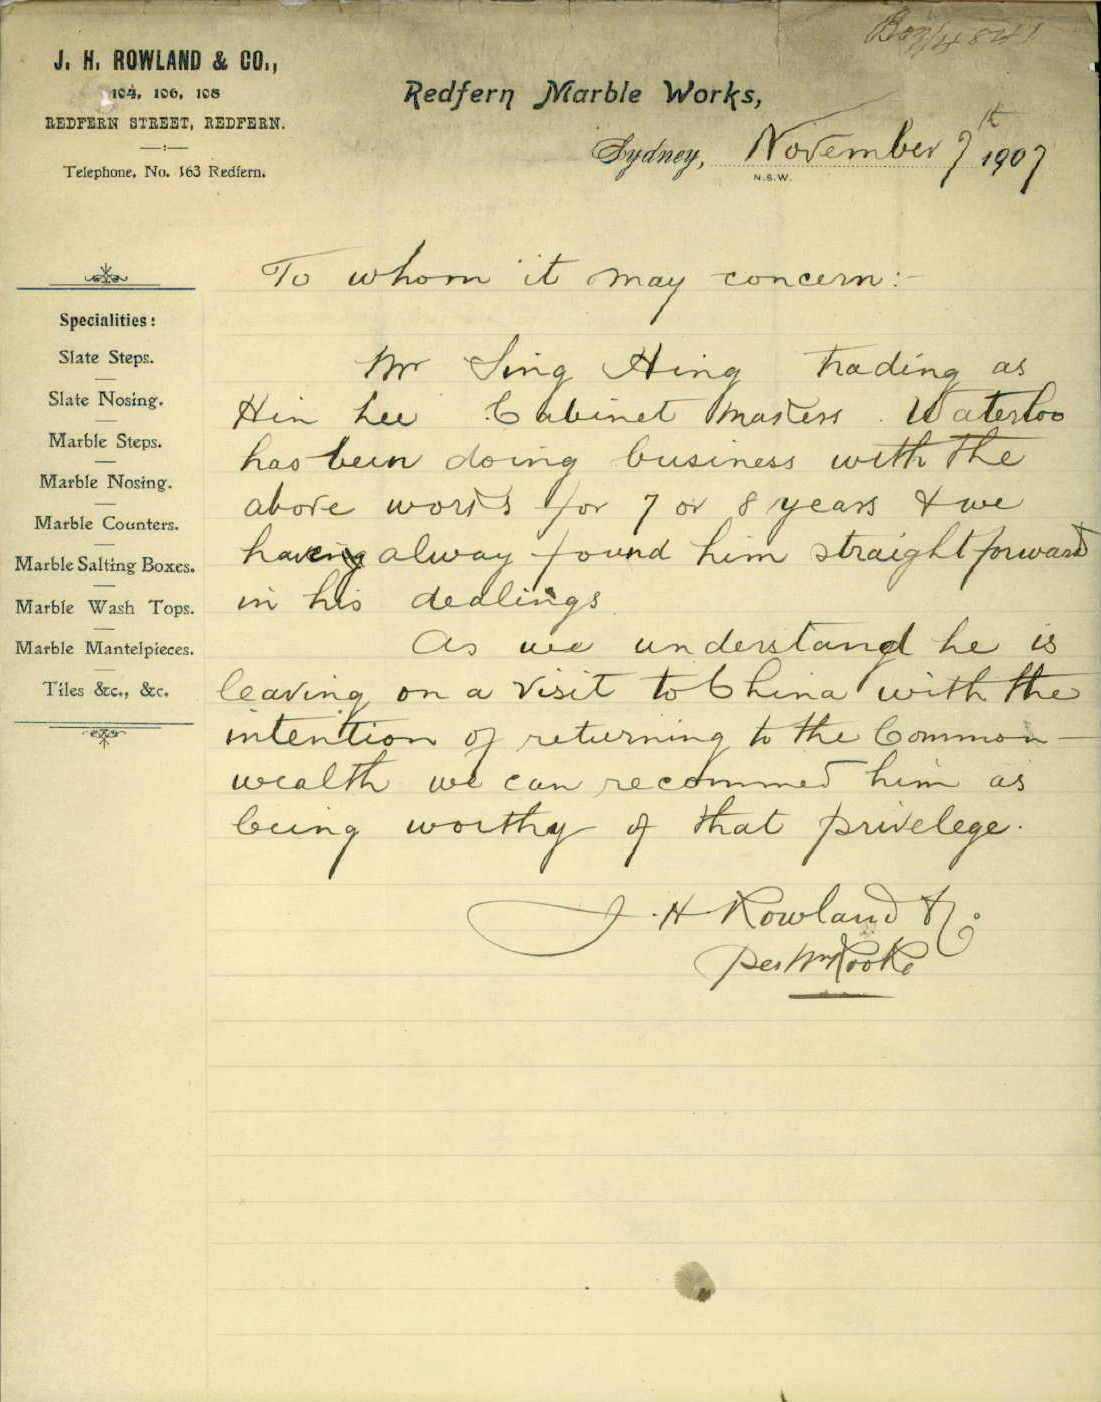 J. H. ROWLAND & CO.,
104, 106, 108
REDFERN STREET, REDFERN.
Telephone, No. 163 Redfern.
Redfern Marble Works,
Sydney, November 7th 1907
N.S.W.
Specialities:
Slate Steps.
Slate Nosing.
Marble Steps.
Marble Nosing.
Marble Counters.
Marble Salting Boxes.
Marble Wash Tops.
Marble Mantelpieces.
Tiles &c., &c.
To whom it may concern:-
Mr Sing Hing trading as
Hin Lee Cabinet Makers. Waterloo
has been doing business with the
above works for 7 or 8 years & we
have alway found him straightforward
in his dealings
As we understand he is
leaving on a visit to China with the
intention of returning to the Common-
wealth we can recommed him as
being worthy of that privelege.
J. H Rowland & Co
Per Wm